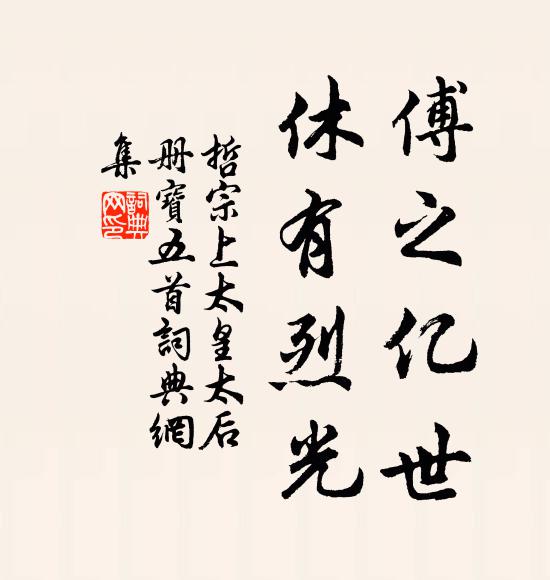 傅之亿世
休有烈光
哲宗上太皇太后
册寶五首詞典網
集
詞典
网印